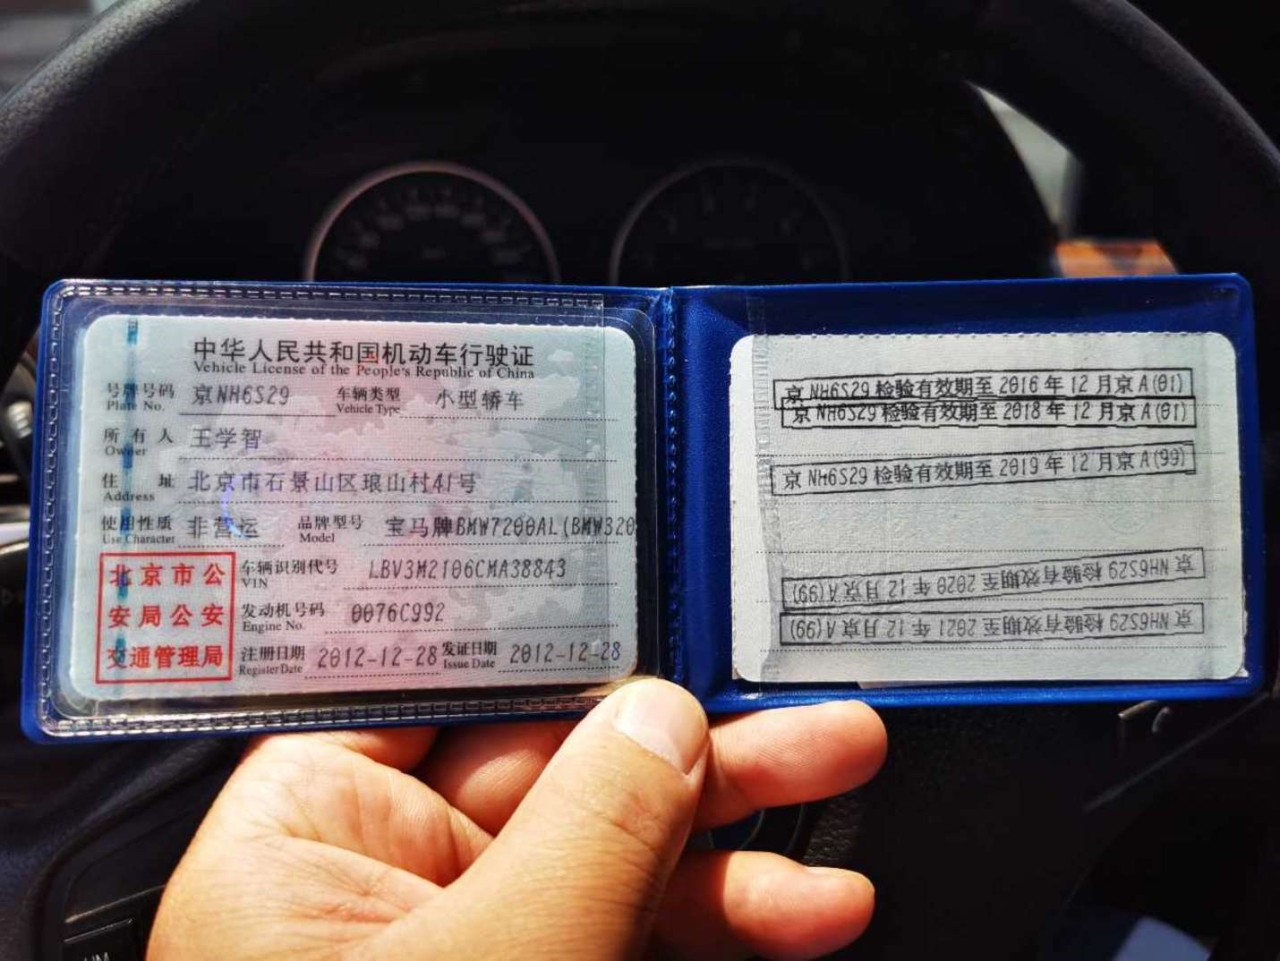 中华人民共和国机动车行驶证
Vehicle License of the People's Republic of China
号牌号码 京NH6S29 车辆类型 小型轿车
Plate No. Vehicle Type
所有人 王学智
Owner
住址 北京市石景山区琅山村41号
Address
使用性质 非营运 品牌型号 宝马牌BMW7200AL(BMW320
Use Character Model
北京市公
安局公安
交通管理局
车辆识别代号 LBV3M2106CMA38843
VIN
发动机号码 0076C992
Engine No.
注册日期 2012-12-28 发证日期 2012-12-28
Register Date Issue Date
京NH6S29 检验有效期至 2016 年 12 月京 A(01)
京NH6S29 检验有效期至 2018 年 12 月京 A(01)
京NH6S29 检验有效期至 2019 年 12 月京 A(99)
京NH6S29 检验有效期至 2020 年 12 月京 A(99)
京NH6S29 检验有效期至 2021 年 12 月京 A(99)